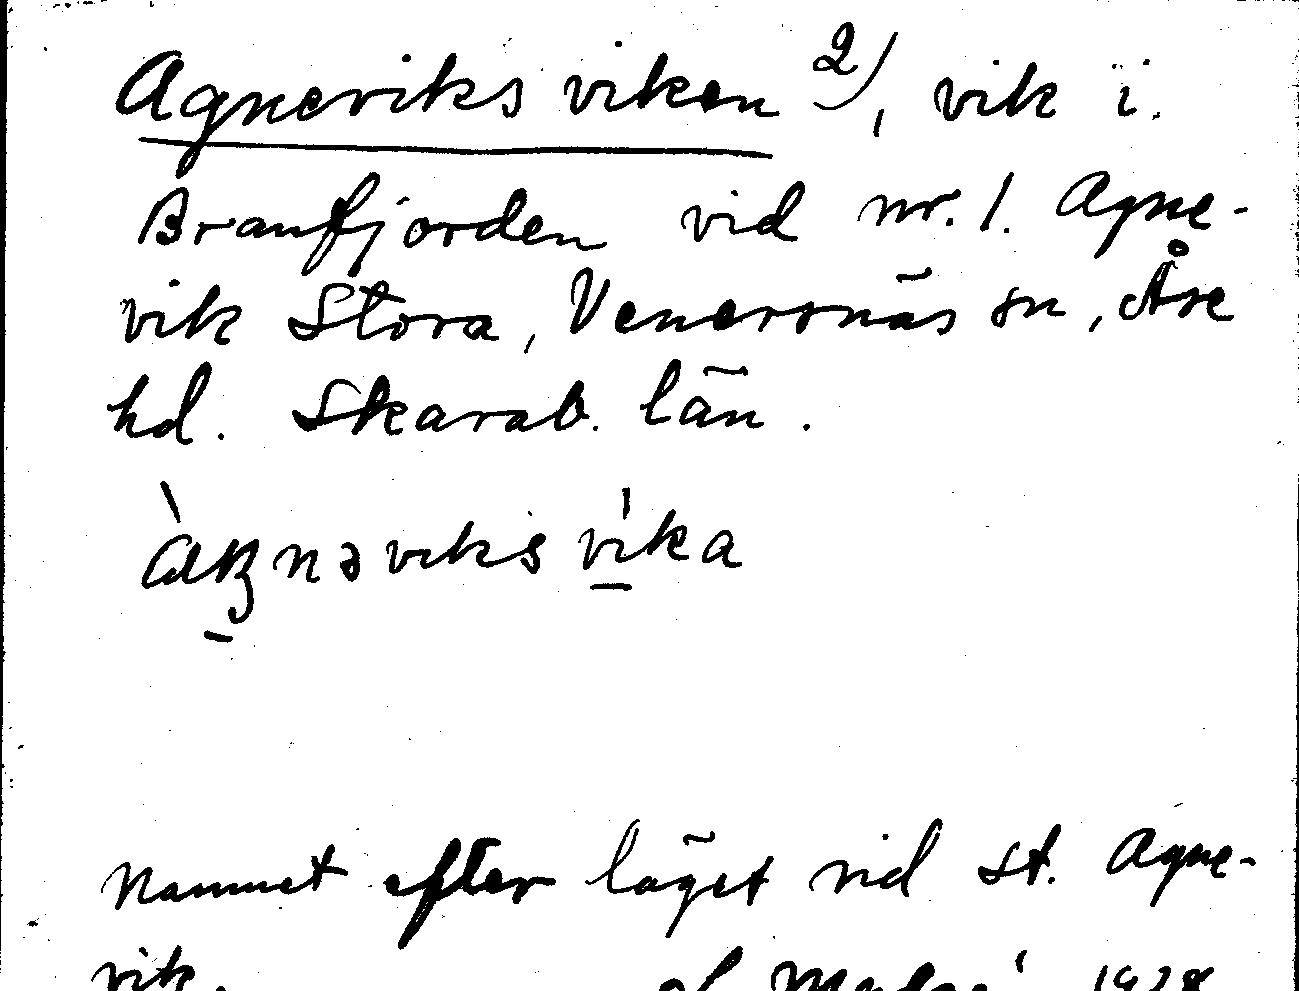 Agneviks viken 2/, vik i.
Branfjorden vid nr. 1. Agne-
vik Stora, Venersnäs sn, Åse
hd. Skarab. län.
viksvika
Namnet efter läget vid st. Agne-
vik.